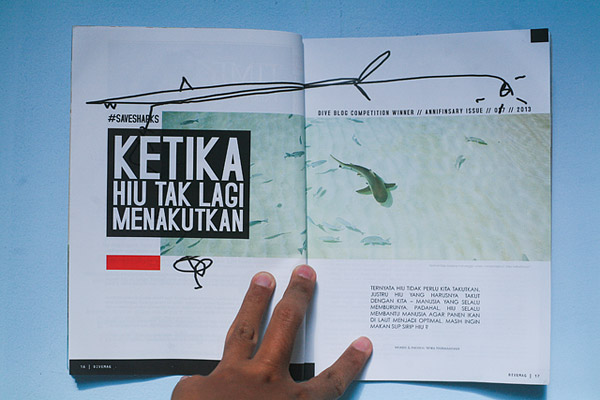 #SAVESHARKS
KETIKA
HIU TAK LAGI
MENAKUTKAN
16 | DIVEMAG
DIVE BLOG COMPETITION WINNER // ANNIFINSARY ISSUE // 007 // 2013
TERNYATA HIU TIDAK PERLU KITA TAKUTKAN.
JUSTRU HIU YANG HARUSNYA TAKUT
DENGAN KITA – MANUSIA YANG SELALU
MEMBURUNYA. PADAHAL, HIU SELALU
MEMBANTU MANUSIA AGAR PANEN IKAN
DI LAUT MENJADI OPTIMAL. MASIH INGIN
MAKAN SUP SIRIP HIU ?
DIVEMAG | 17